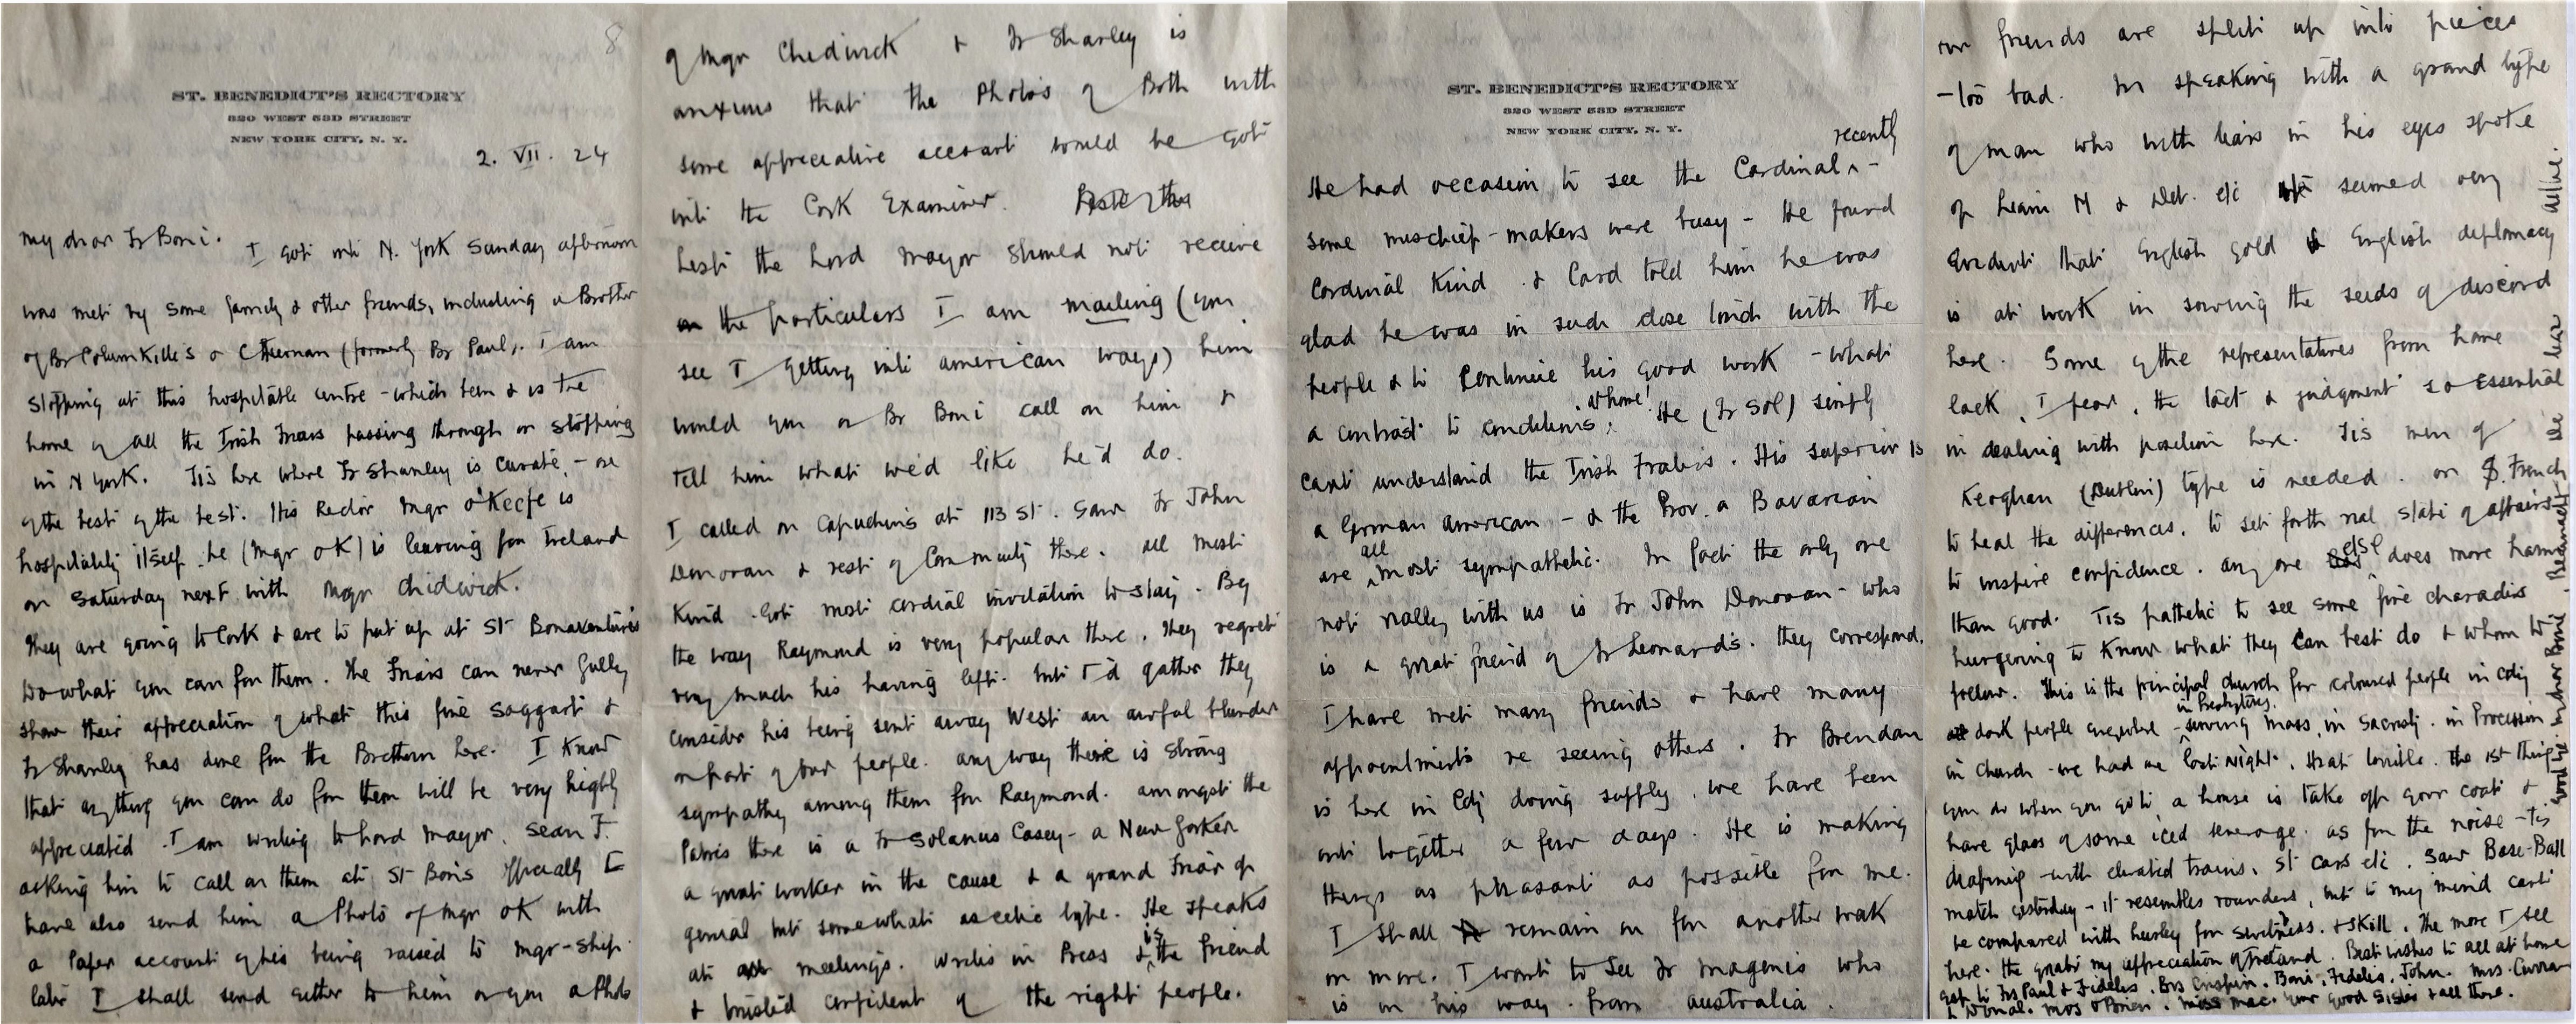 8
ST. BENEDICT'S RECTORY
320 WEST 53D STREET
NEW YORK CITY, N. Y.
2. VII. 24
My dear Fr Boni. I got into N. York Sunday afternoon
was met by some family & other friends, including a Brother
of Br Columkille's & C Heernan (formerly Br Paul). I am
stopping at this hospitable centre - which been & is the
home of all the Irish Friars passing through or stopping
in N York. Tis here where Fr Shanley is curate, - one
of the best of the best. His Rector Mgr O'Keefe is
hospitality itself. he (Mgr OK) is leaving for Ireland
on Saturday next with Mgr Chidwick.
They are going to Cork & are to put up at St Bonaventure's
Do what you can for them. The Friars can never fully
show their appreciation of what this fine Soggart &
Fr Shanley has done for the Brethern here. I know
that anything you can do for them will be very highly
appreciated. I am writing to Lord Mayor, Sean F.
asking him to call on them at St Bon's officially I
have also send him a Photo of Mgr OK with
a Paper account of his being raised to Mgr-ship.
later I shall send either to him or you a Photo
of Mgr Chidwick & Fr Shanley is
anxious that the Photos of Both with
some appreciative account would be got
into the Cork Examiner.
Lest the Lord Mayor should not receive
the particulars I am mailing (you
see I getting into american ways) him
would you or Br Boni call on him &
tell him what we'd like he'd do.
I called on Capuchins at 113 St. Saw Fr John
Donovan & rest of Community there. all most
kind. Got most cordial invitation to stay. By
the way Raymond is very popular there. They regret
very much his having left. but I'd gather they
consider his being sent away West an awful blunder
on part of our people. anyway there is strong
sympathy among them for Raymond. amongst the
Patres there is a Fr Solanus Casey - a New Yorker
a great worker in the cause & a grand Friar of
genial but somewhat ascetic type. He speaks
at meetings. Writes in Press & is the friend
& trusted confident of the right people.
ST. BENEDICT'S RECTORY
320 WEST 53D STREET
NEW YORK CITY, N. Y.
He had occasion to see the Cardinal recently -
some mischief-makers were busy - He found
Cardinal kind & Card told him he was
glad he was in such close touch with the
people & to continue his good work - what
a contrast to conditions at home! He (Fr Sol) simply
can't understand the Irish Prelates. His superior is
a German American - & the Prov. a Bavarian
are all most sympathetic. In fact the only one
not really with us is Fr John Donovan - who
is a great friend of Fr Leonard's. they correspond.
I have met many friends & have many
appointments re seeing others. Fr Brendan
is here in City doing supply. we have been
out together a few days. He is making
things as pleasant as possible for me.
I shall remain on for another week
or more. I want to see Fr Magenis who
is in his way from Australia.
our friends are split up into pieces
- too bad. In speaking with a grand type
of man who with tears in his eyes spoke
of Liam M & Dev. etc seemed very
evident that English gold & English diplomacy
is at work in sowing the seeds of discord
here. Some of the representatives from home
lack, I fear, the tact & judgment so essential
in dealing with position here. Tis men of
Keoghan (Dublin) type is needed. or S. French
to heal the differences, to set forth real state of affairs -
to inspire confidence. any one else does more harm
than good. Tis pathetic to see some fine characters
hungering to know what they can best do & whom to
follow. This is the principal church for coloured people in city
dark people everywhere - in Presbytery, serving mass, in Sacristy. in Procession
in church - we had one last night. Heat terrible. The 1st thing
you do when you go to a house is take off your coat &
have glass of some iced beverage. as for the noise - tis
deafening - with elevated trains, st cars etc. Saw Base-Ball
match yesterday - it resembles rounders, but to my mind can't
be compared with hurley for swiftness & skill. The more I see
here. the greater my appreciation of Ireland. Best wishes to all at home
esp to Frs Paul & Fidelis. Brs Crispin. Boni, Fidelis, John. Mrs Curran
Mrs O'Brien. Miss Mac. your good Sister & all there.
Good bye my dear Boni. Beannacht De leat Ailbe.